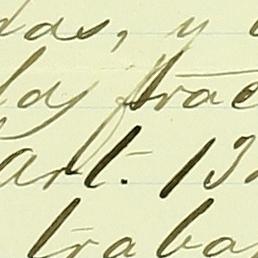 das, y
las frac
art. 13
traba